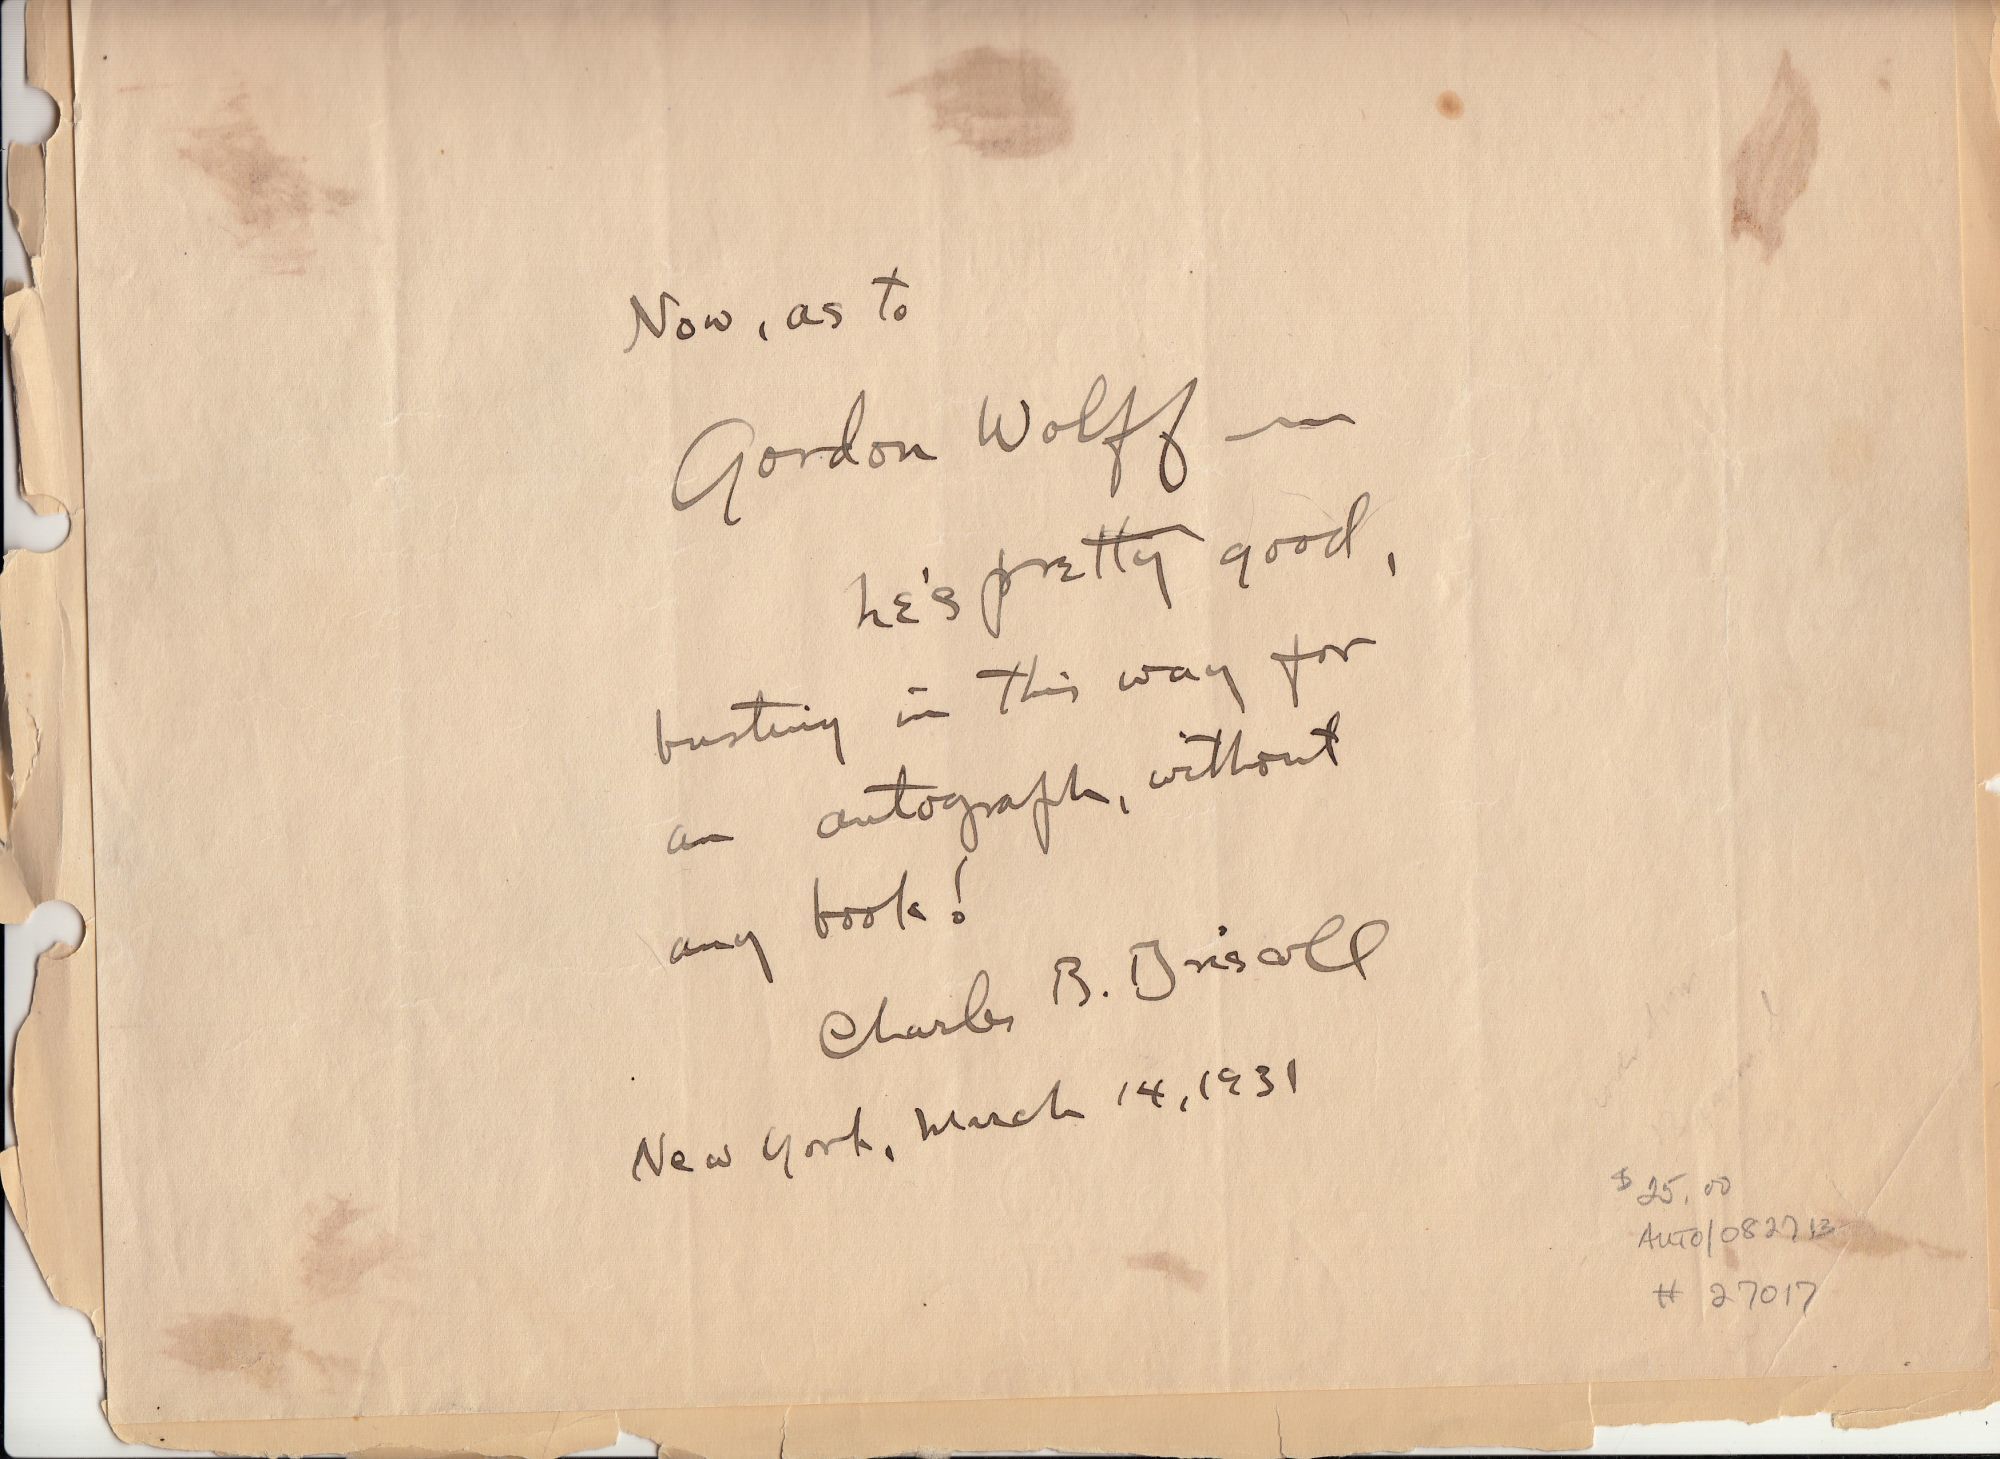 Now, as to
Gordon Wolff —
he's pretty good,
busting in this way for
an autograph, without
any book!
Charles B. Driscoll
New York, March 14, 1931
$25.00
AUTO/082713
# 27017